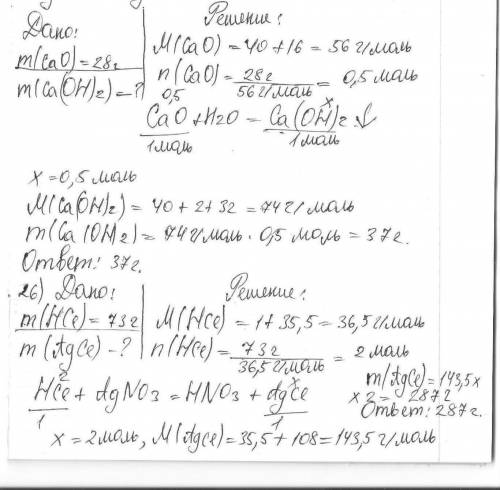 Дано:
m(CaO) = 28г
m(Ca(OH)2) = ?
Решение:
M(CaO) = 40 + 16 = 56 г/моль
n(CaO) = 28г / 56 г/моль = 0,5 моль
0,5 x
CaO + H2O = Ca(OH)2 ↓
1моль 1моль
x = 0,5 моль
M(Ca(OH)2) = 40 + 2 + 32 = 74 г/моль
m(Ca(OH)2) = 74 г/моль · 0,5 моль = 37 г.
Ответ: 37 г.
26) Дано:
m(HCe) = 73 г
m(AgCe) - ?
Решение:
M(HCe) = 1 + 35,5 = 36,5 г/моль
n(HCe) = 73 г / 36,5 г/моль = 2 моль
2 x
HCe + AgNO3 = HNO3 + AgCe
1 1
m(AgCe) = 143,5 x
x 2 = 287 г
Ответ: 287 г.
x = 2 моль, M(AgCe) = 35,5 + 108 = 143,5 г/моль